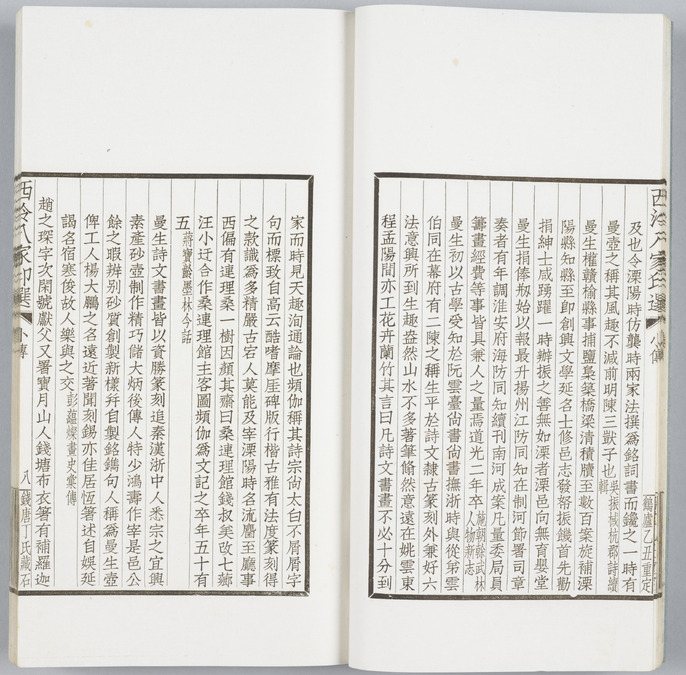 西泠八家印選 小傳
鶴廬乙丑重定
及也令溧陽時仿龔時兩家法撰爲銘詞書而鑱之一時有
曼壺之稱其風趣不減前明陳三獃子也吳振棫杭郡詩續輯
曼生權贛榆縣事捕鹽梟築橋梁清積牘至數百案旋補溧
陽縣知縣至即創興文學延名士修邑志發帑振饑首先勸
捐紳士咸踴躍一時辦振之善無如溧者溧邑向無育嬰堂
曼生捐俸剏始以報最升揚州江防同知在制河節署司章
奏者有年調淮安府海防同知續刊南河成案凡量委局員
籌畫經費等事皆具兼人之量焉道光二年卒施朝榦武林人物新志
曼生初以古學受知於阮雲臺尚書尚書撫浙時與從弟雲
伯同在幕府有二陳之稱生平於詩文隸古篆刻外兼好六
法意興所到生趣盎然山水不多著筆翛然意遠在姚雲東
程孟陽間亦工花卉蘭竹其言曰凡詩文書畫不必十分到
家而時見天趣洵通論也頻伽稱其詩宗尚太白不屑屑字
句而標致自高云酷嗜摩厓碑版行楷古雅有法度篆刻得
之款識爲多精嚴古宕人莫能及宰溧陽時名流麕至廳事
西偏有連理桑一樹因顏其齋曰桑連理館錢叔美改七薌
汪小迂合作桑連理館主客圖頻伽爲文記之卒年五十有
五蔣寶齡墨林今話
曼生詩文書畫皆以資勝篆刻追秦漢浙中人悉宗之宜興
素產砂壺制作精巧儲大炳後傳人特少鴻壽作宰是邑公
餘之暇辨別砂質創製新樣幷自製銘鐫句人稱爲曼生壺
俾工人楊大鵬之名遠近著聞刻錫亦佳居恆箸述自娛延
謁名宿寒俊故人樂與之交彭蘊燦畫史彙傳
趙之琛字次閑號獻父又署寶月山人錢塘布衣箸有補羅迦
西泠八家印選 小傳
八 錢唐丁氏藏石